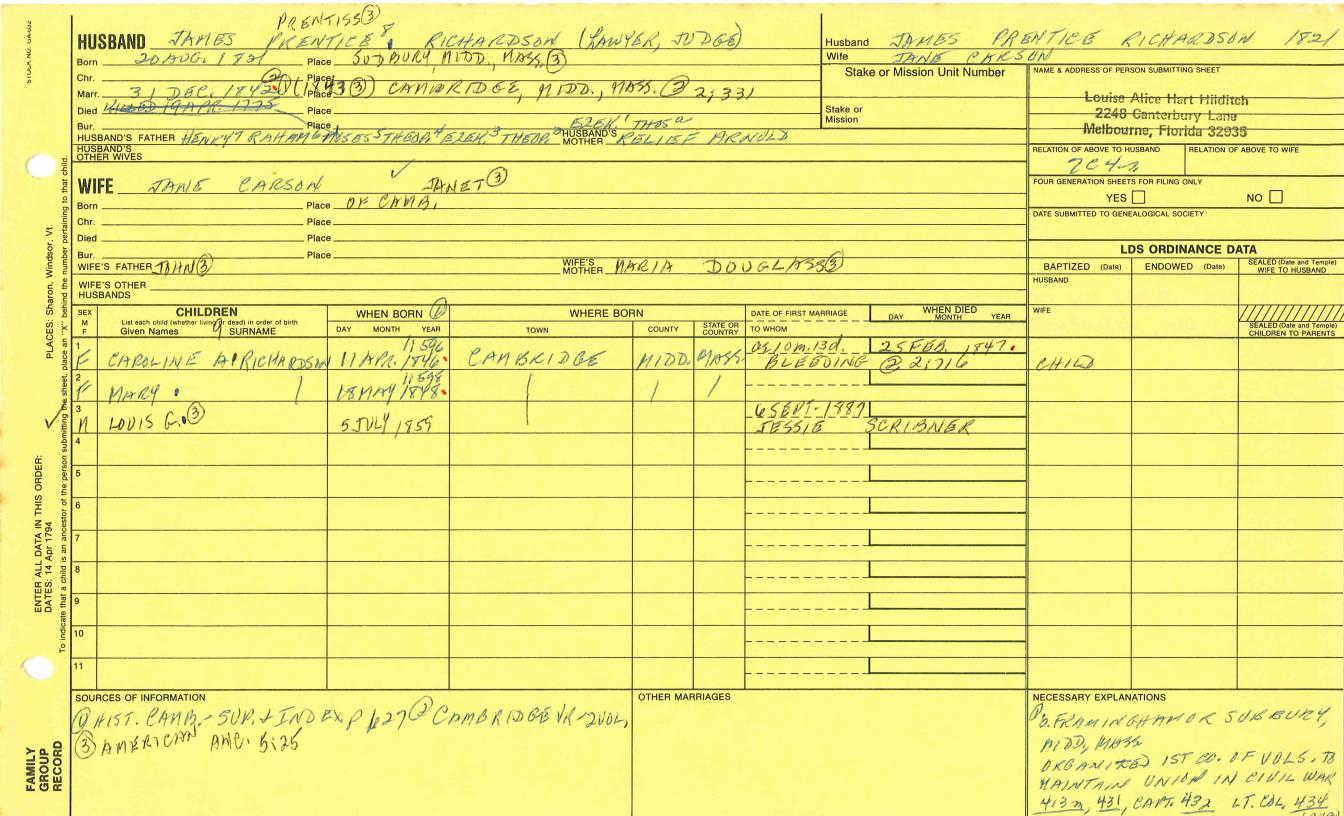 STOCK NO. GA-632
PRENTISS ③
HUSBAND JAMES PRENTICE 8, RICHARDSON (LAWYER, JUDGE)
Born 20 AUG. 1821 Place SUDBURY, MIDD., MASS. ③
Chr. Place
Marr. 31 DEC. 1842 ② ① (1843 ③) Place CAMBRIDGE, MIDD., MASS. ③ 2;331
Died KILLED 19 APR. 1775 Place
Bur. Place EZEK. 1 THOS a
HUSBAND'S FATHER HENRY 7 RAHAM 6 MOSES 5 THEOP. 4 EZEK. 3 THEOP. 2 HUSBAND'S MOTHER RELIEF ARNOLD
HUSBAND'S OTHER WIVES
WIFE JANE CARSON JANET ③
Born Place OF CAMB.
Chr. Place
Died Place
Bur. Place
WIFE'S FATHER JOHN ③ WIFE'S MOTHER MARIA DOUGLASS ③
WIFE'S OTHER HUSBANDS
Husband JAMES PRENTICE RICHARDSON 1821
Wife JANE CARSON
Stake or Mission Unit Number
Stake or Mission
NAME & ADDRESS OF PERSON SUBMITTING SHEET
Louise Alice Hart Hilditch
2248 Canterbury Lane
Melbourne, Florida 32935
RELATION OF ABOVE TO HUSBAND RELATION OF ABOVE TO WIFE
2C4r
FOUR GENERATION SHEETS FOR FILING ONLY
YES NO
DATE SUBMITTED TO GENEALOGICAL SOCIETY
LDS ORDINANCE DATA
BAPTIZED (Date) ENDOWED (Date) SEALED (Date and Temple) WIFE TO HUSBAND
HUSBAND
WIFE
SEALED (Date and Temple) CHILDREN TO PARENTS
SEX M F
CHILDREN
List each child (whether living or dead) in order of birth
Given Names 9 SURNAME
WHEN BORN ①
DAY MONTH YEAR
WHERE BORN
TOWN COUNTY STATE OR COUNTRY
DATE OF FIRST MARRIAGE
TO WHOM
WHEN DIED
DAY MONTH YEAR
1 1;596 a5 10m. 13d. 25 FEB. 1847.
F CAROLINE A. RICHARDSON 11 APR. 1846. CAMBRIDGE MIDD. MASS. BLEEDING ② 2;716 CHILD
2 1;598
F MARY 18 MAY 1848.
3 6 SEPT-1887
M LOUIS G. ③ 5 JULY 1859 JESSIE SCRIBNER
4
5
6
7
8
9
10
11
SOURCES OF INFORMATION
① HIST. CAMB. - SUP. + INDEX P 627 ② CAMBRIDGE VR - 2VOL,
③ AMERICAN ANC. 5:25
OTHER MARRIAGES
NECESSARY EXPLANATIONS
① B. FRAMINGHAM OR SUDBURY,
MIDD, MASS
ORGANIZED 1ST CO. OF VOLS. TO
MAINTAIN UNION IN CIVIL WAR
413n, 431, CAPT. 432 LT. COL. 434
PLACES: Sharon, Windsor, Vt.
ENTER ALL DATA IN THIS ORDER:
DATES: 14 Apr 1794
To indicate that a child is an ancestor of the person submitting the sheet, place an "X" behind the number pertaining to that child.
FAMILY GROUP RECORD